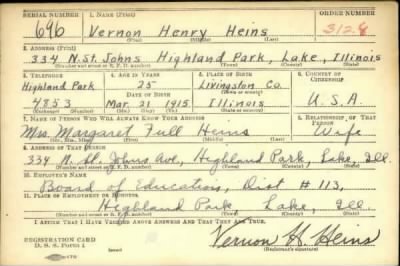 SERIAL NUMBER 1. NAME (Print) ORDER NUMBER
696 Vernon Henry Heins 3128
(First) (Middle) (Last)
2. ADDRESS (Print)
334 N. St. Johns Highland Park, Lake, Illinois
(Number and street or R. F. D. number) (Town) (County) (State)
3. TELEPHONE 4. AGE IN YEARS 5. PLACE OF BIRTH 6. COUNTRY OF CITIZENSHIP
Highland Park 25 Livingston Co.
DATE OF BIRTH (Town or county)
4353 Mar. 21 1915 Illinois U.S.A.
(Exchange) (Number) (Mo.) (Day) (Yr.) (State or country)
7. NAME OF PERSON WHO WILL ALWAYS KNOW YOUR ADDRESS 8. RELATIONSHIP OF THAT PERSON
Mrs. Margaret Full Heins Wife
(Mr., Mrs., Miss) (First) (Middle) (Last)
9. ADDRESS OF THAT PERSON
334 N. St. Johns Ave, Highland Park, Lake, Ill.
(Number and street or R. F. D. number) (Town) (County) (State)
10. EMPLOYER'S NAME
Board of Education, Dist # 113,
11. PLACE OF EMPLOYMENT OR BUSINESS
Highland Park Lake, Ill.
(Number and street or R. F. D. number) (Town) (County) (State)
I AFFIRM THAT I HAVE VERIFIED ABOVE ANSWERS AND THAT THEY ARE TRUE.
REGISTRATION CARD
D. S. S. FORM 1
Vernon H. Heins
(Registrant's signature)